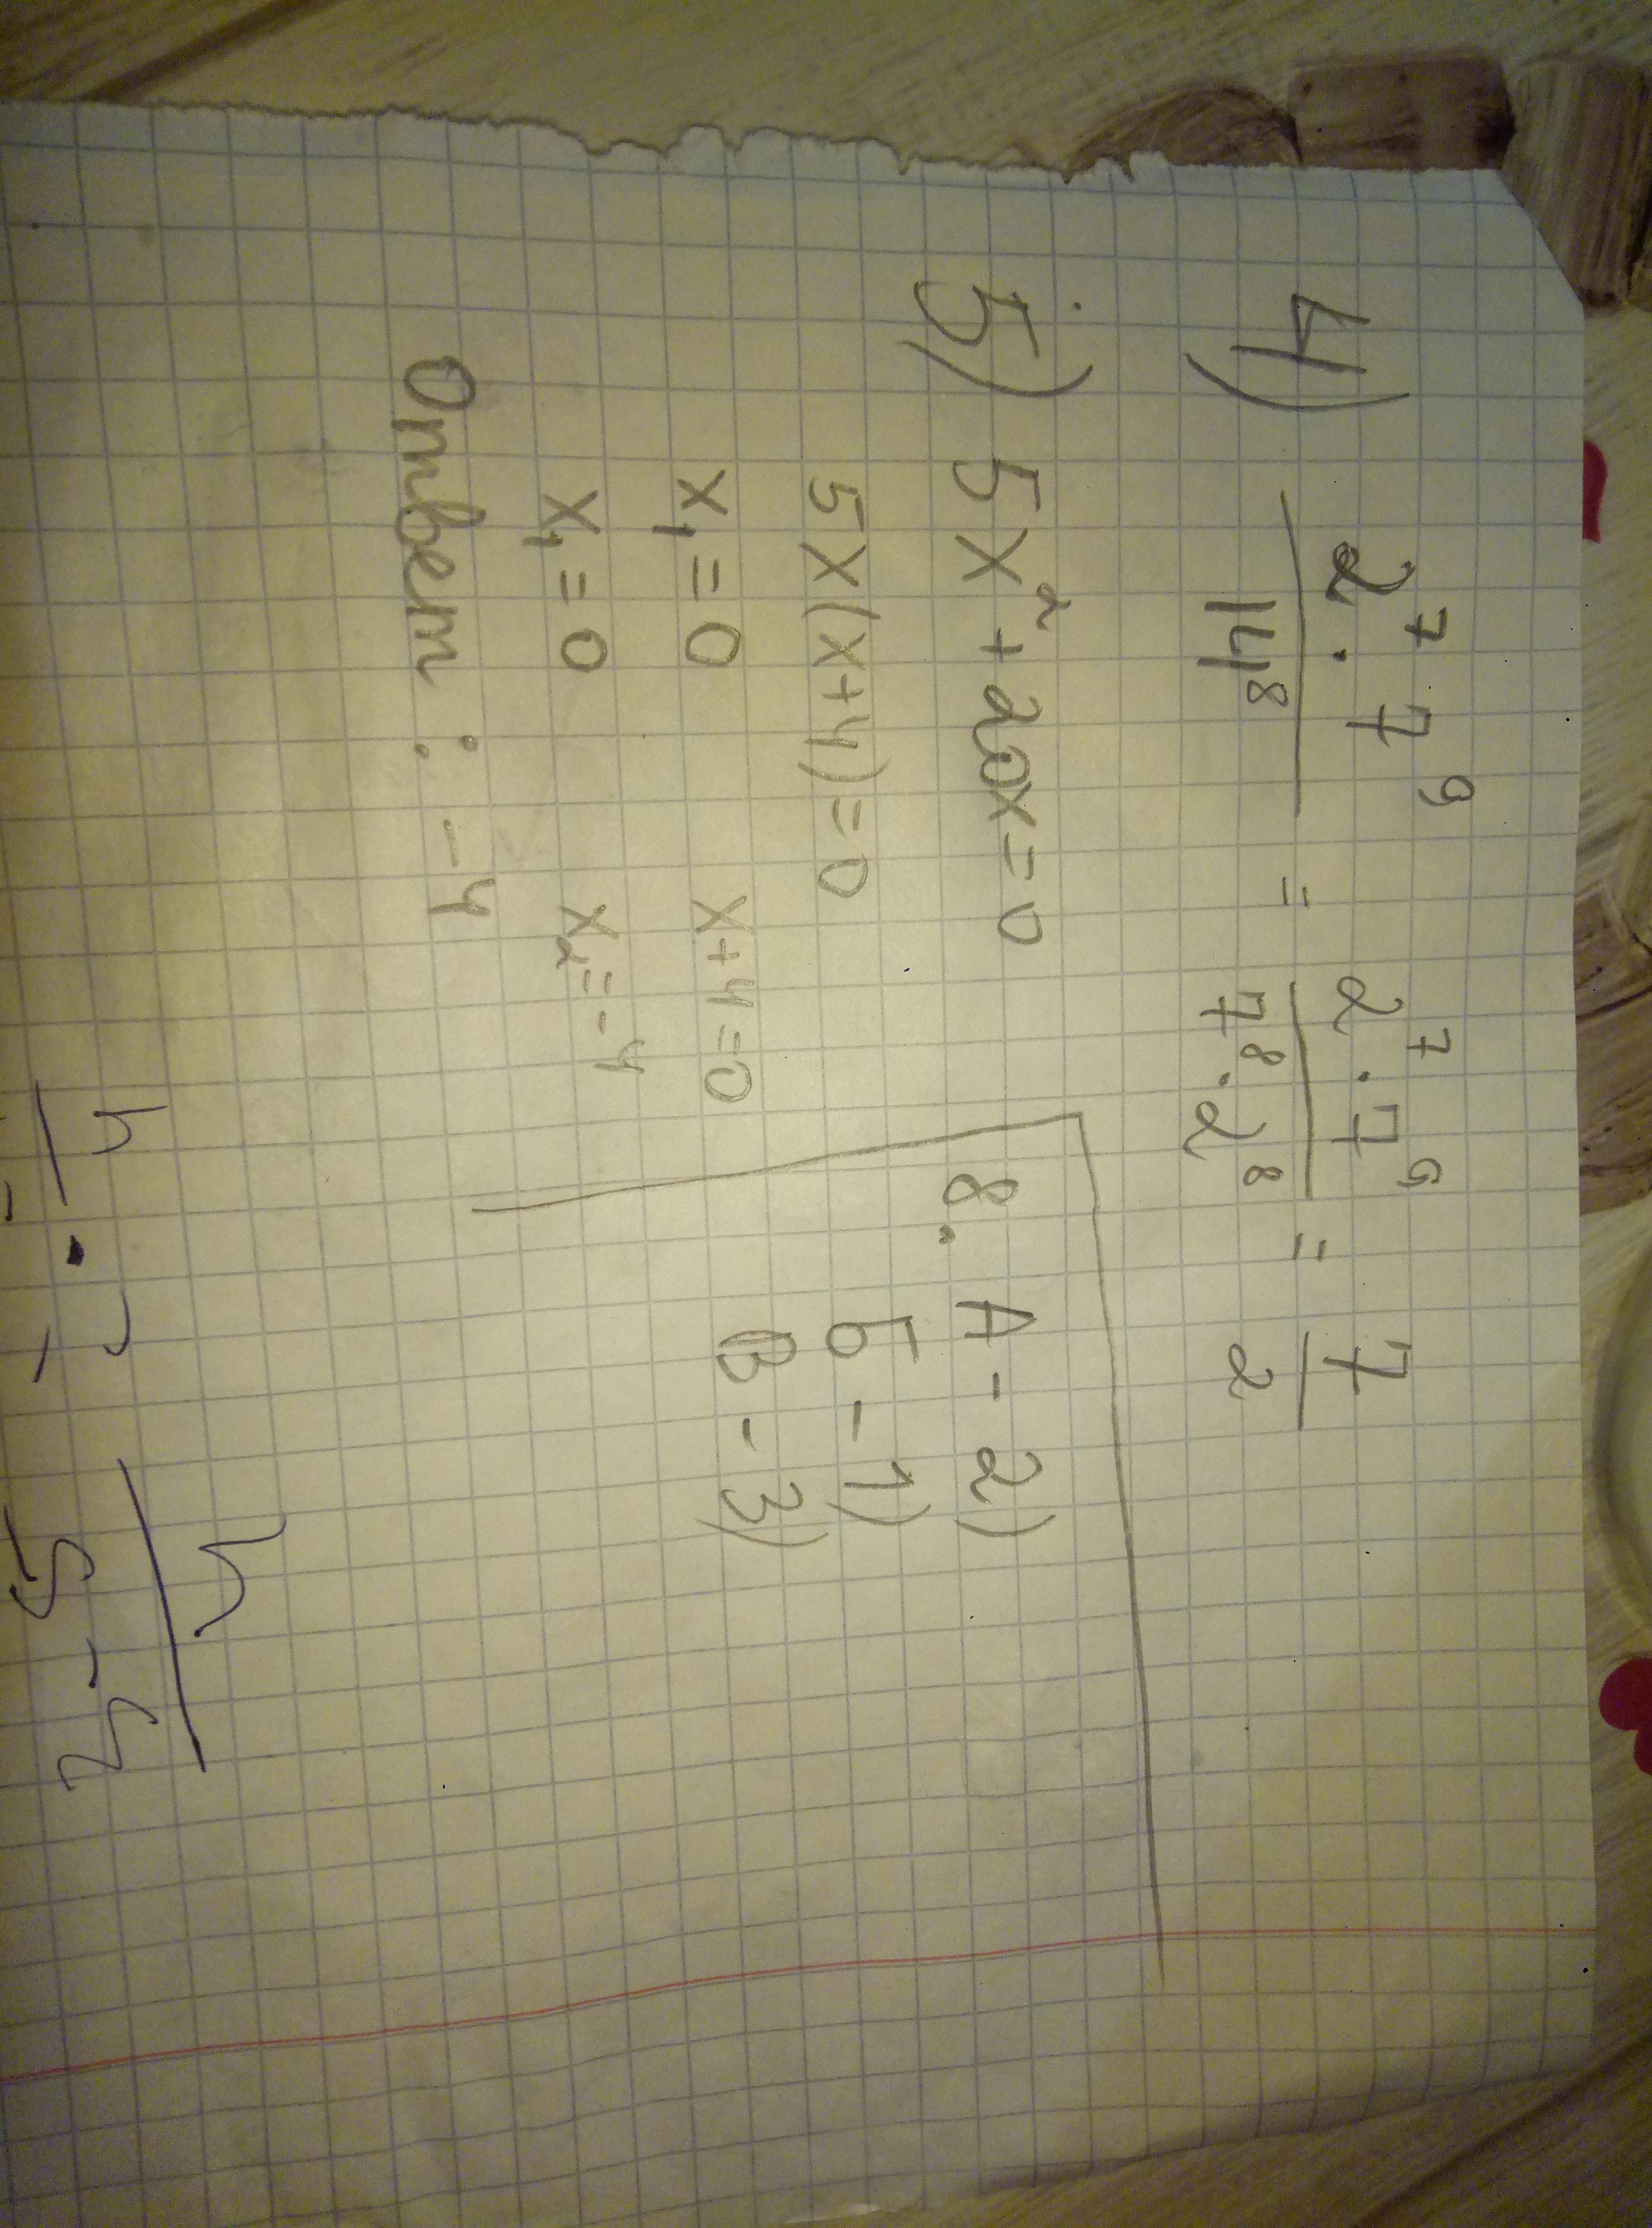 4) 2⁷·7⁹ / 14⁸ = 2⁷·7⁹ / 7⁸·2⁸ = 7/2
5) 5x²+20x=0
5x(x+4)=0
x₁=0 x+4=0
x₁=0 x₂=-4
Ответ: -4
8. А - 2)
Б - 1)
В - 3)